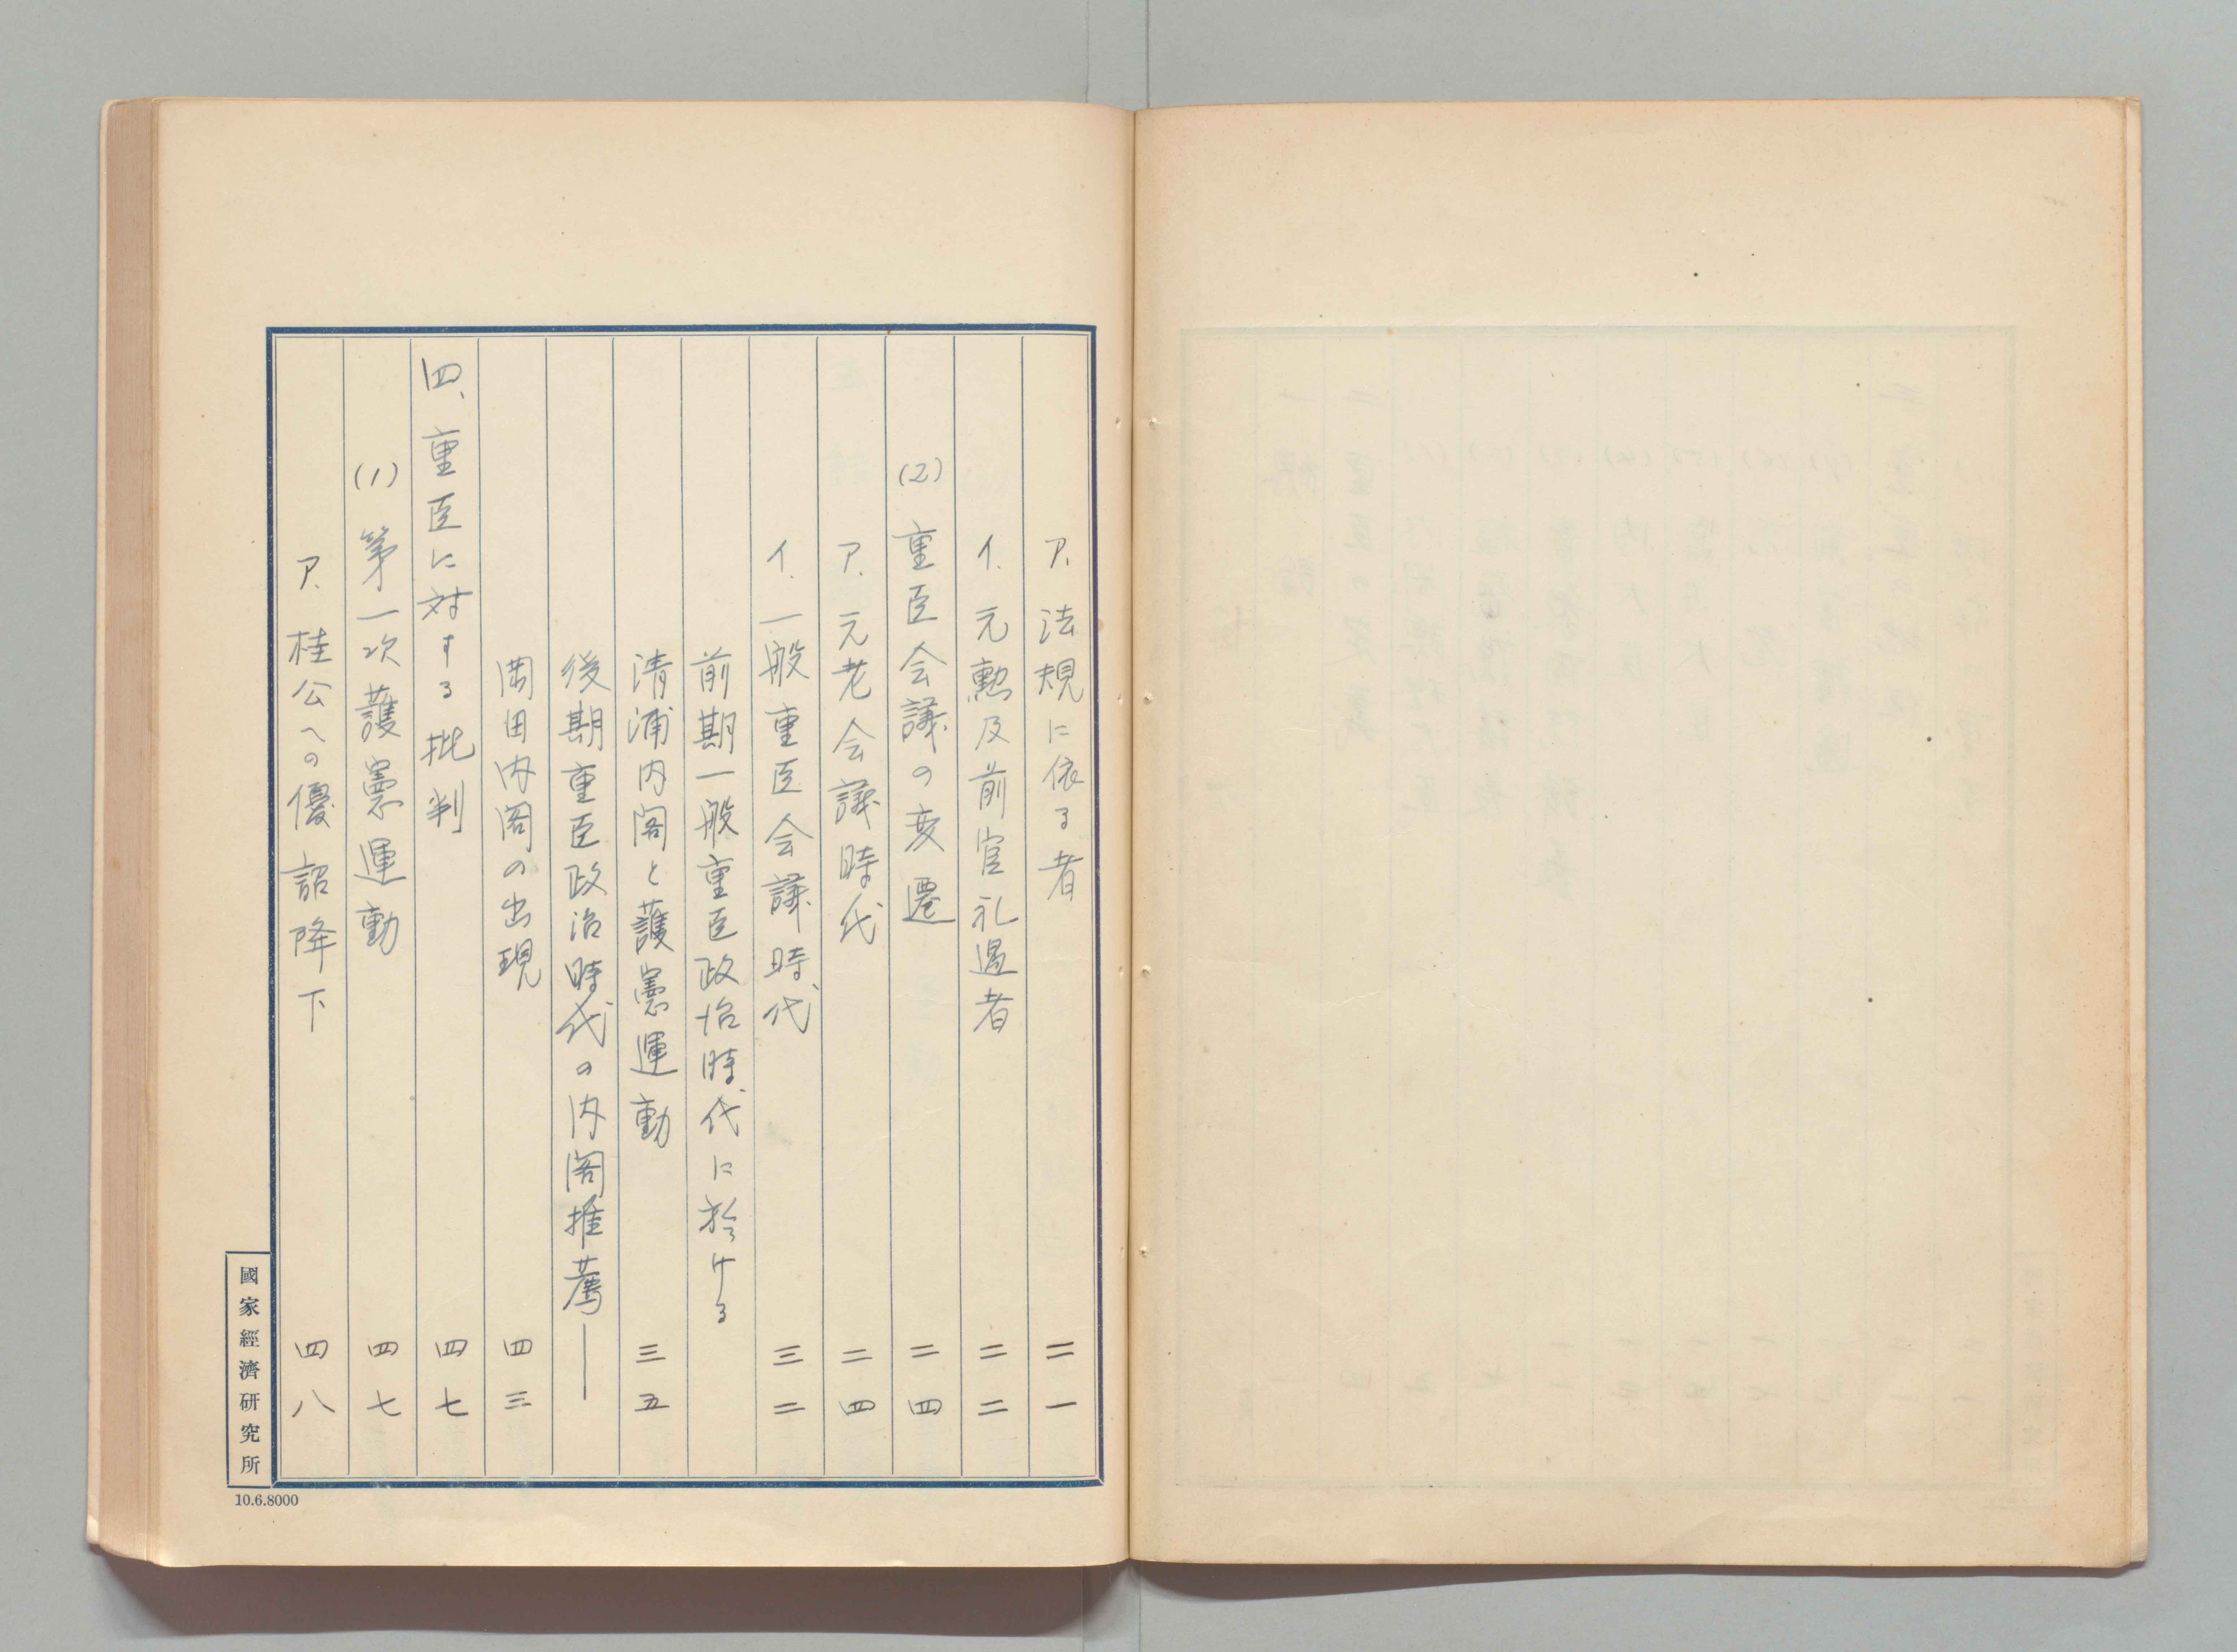 ア、法規に依る者 二一
イ、元勲及前官礼遇者 二二
(2) 重臣会議の変遷 二四
ア、元老会議時代 二四
イ、一般重臣会議時代 三二
前期一般重臣政治時代に於ける
清浦内閣と護憲運動 三五
後期重臣政治時代の内閣推薦―
岡田内閣の出現 四三
四、重臣に対する批判 四七
(1) 第一次護憲運動 四七
ア、桂公への優詔降下 四八
國家經濟研究所
10.6.8000